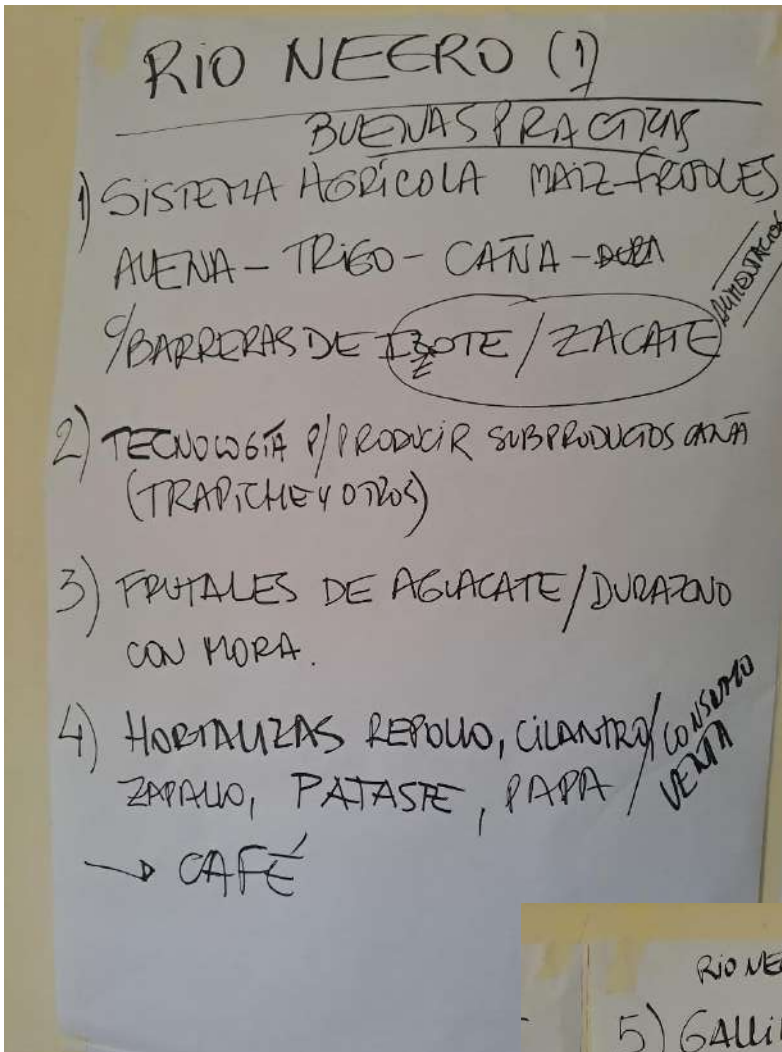 RIO NEGRO (1)
BUENAS PRACTICAS
1) SISTEMA AGRÍCOLA MAIZ-FRIJOLES
AVENA - TRIGO - CAÑA -
ALIMENTACION
c/BARRERAS DE IZOTE / ZACATE
2) TECNOLOGÍA P/PRODUCIR SUBPRODUCTOS CAÑA
(TRAPICHE Y OTROS)
3) FRUTALES DE AGUACATE/DURAZNO
CON MORA.
4) HORTALIZAS REPOLLO, CILANTRO/
ZAPALLO, PATASTE, PAPA /
CONSUMO
VENTA
→ CAFÉ
RIO NE
5) GALLI